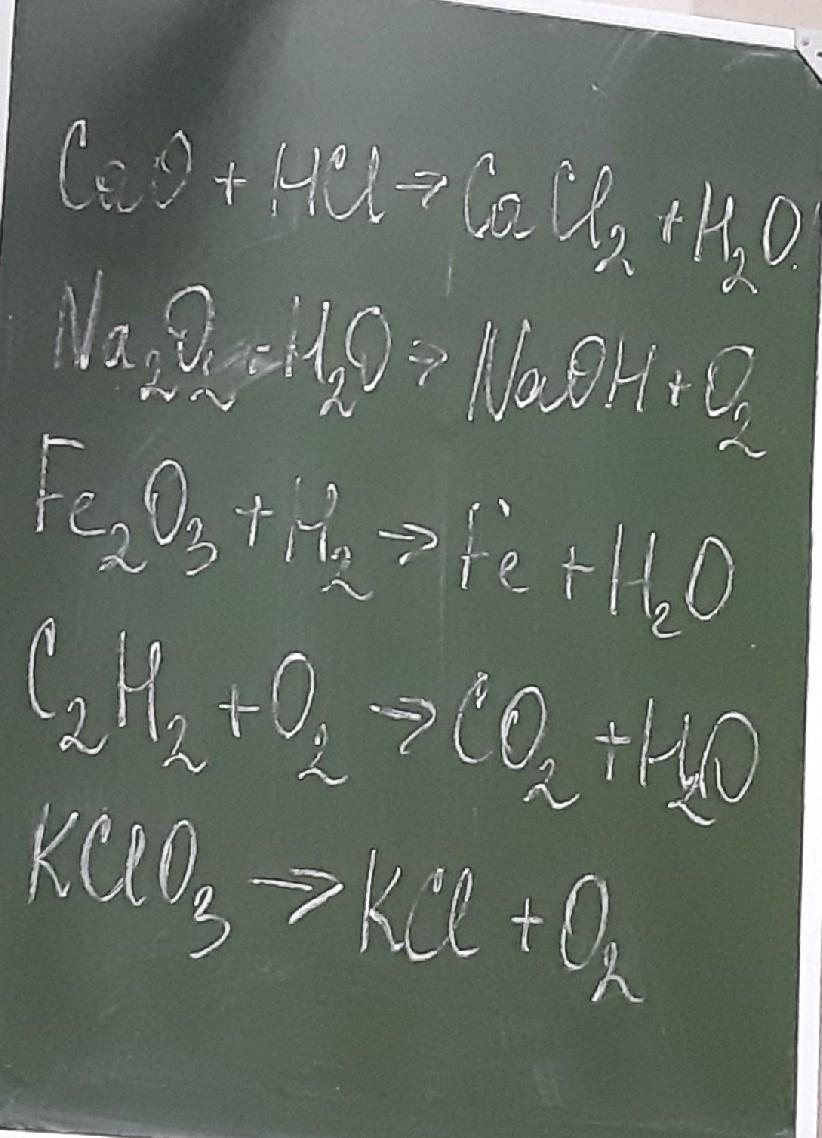 CaO + HCl → CaCl₂ + H₂O
Na₂O₂ + H₂O → NaOH + O₂
Fe₂O₃ + H₂ → Fe + H₂O
C₂H₂ + O₂ → CO₂ + H₂O
KClO₃ → KCl + O₂